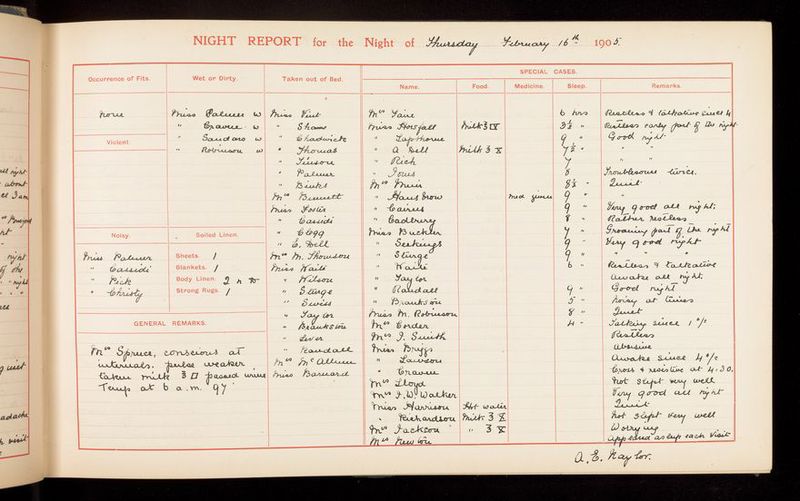 NIGHT REPORT for the Night of Thursday February 16th 1905.
Occurrence of Fits.
Wet or Dirty.
Taken out of Bed.
SPECIAL CASES.
Name.
Food.
Medicine.
Sleep.
Remarks.
None
Violent.
Noisy.
Miss Palmer
" Cassidi
" Rick
" Christy
Miss Palmer w
" Craven w
" Sandars w
" Robinson w
Soiled Linen.
Sheets. 1
Blankets. 1
Body Linen.
Strong Rugs. 1
GENERAL REMARKS.
Mrs Spruce, conscious at
intervals, pulse weaker.
taken milk passed urine
Temp at 6 a.m. 97
Miss Vint
" Shaw
" Chadwick
" Thomas
" Palmer
" Binks
Mrs Bennett
Miss Foster
" Cassidi
" Clegg
" C. Bell
Mrs M. Thomson
Miss Waite
" Wilson
" Sturge
" Swiss
" Taylor
" Lever
" Randall
Miss Barnard
Mrs 6 hrs Restless & talkative since 4
Miss Howfall Milk 3 IV 3½ " Restless early part of the night
" Lapthorne 9 " Good night
" A Bell Milk 3 X 7½ "
" Rick 7 "
8 Troublesome twice.
Mrs 8½ " Quiet
9 "
" Cairns 9 " Very good all night.
" Cadbury 8 " Rather restless
Miss Buckler 7 " Groaning part of the night
" Seekings 9 " Very good night
" Sturge 9 "
" Waite 6 " Restless & talkative
" Taylor awake all night.
" Randall 9 " Good night
5 " Noisy at times
Miss M. Robinson 8 " Quiet
Mrs Corder 4 " Talking since 1 o/c
Mrs J. Smith Restless
Miss Briggs abusive
" Lawson Awake since 4 o/c
" Craven Cross & resistive at 4.30.
Mrs Lloyd Not slept very well
Mrs J.W. Walker Very good all night
Miss Harrison Hot water Quiet
" Richardson Milk 3 X Not slept very well
Mrs Jackson " 3 X Worrying
Mrs Newton appeared asleep each visit
A. E. Naylor.